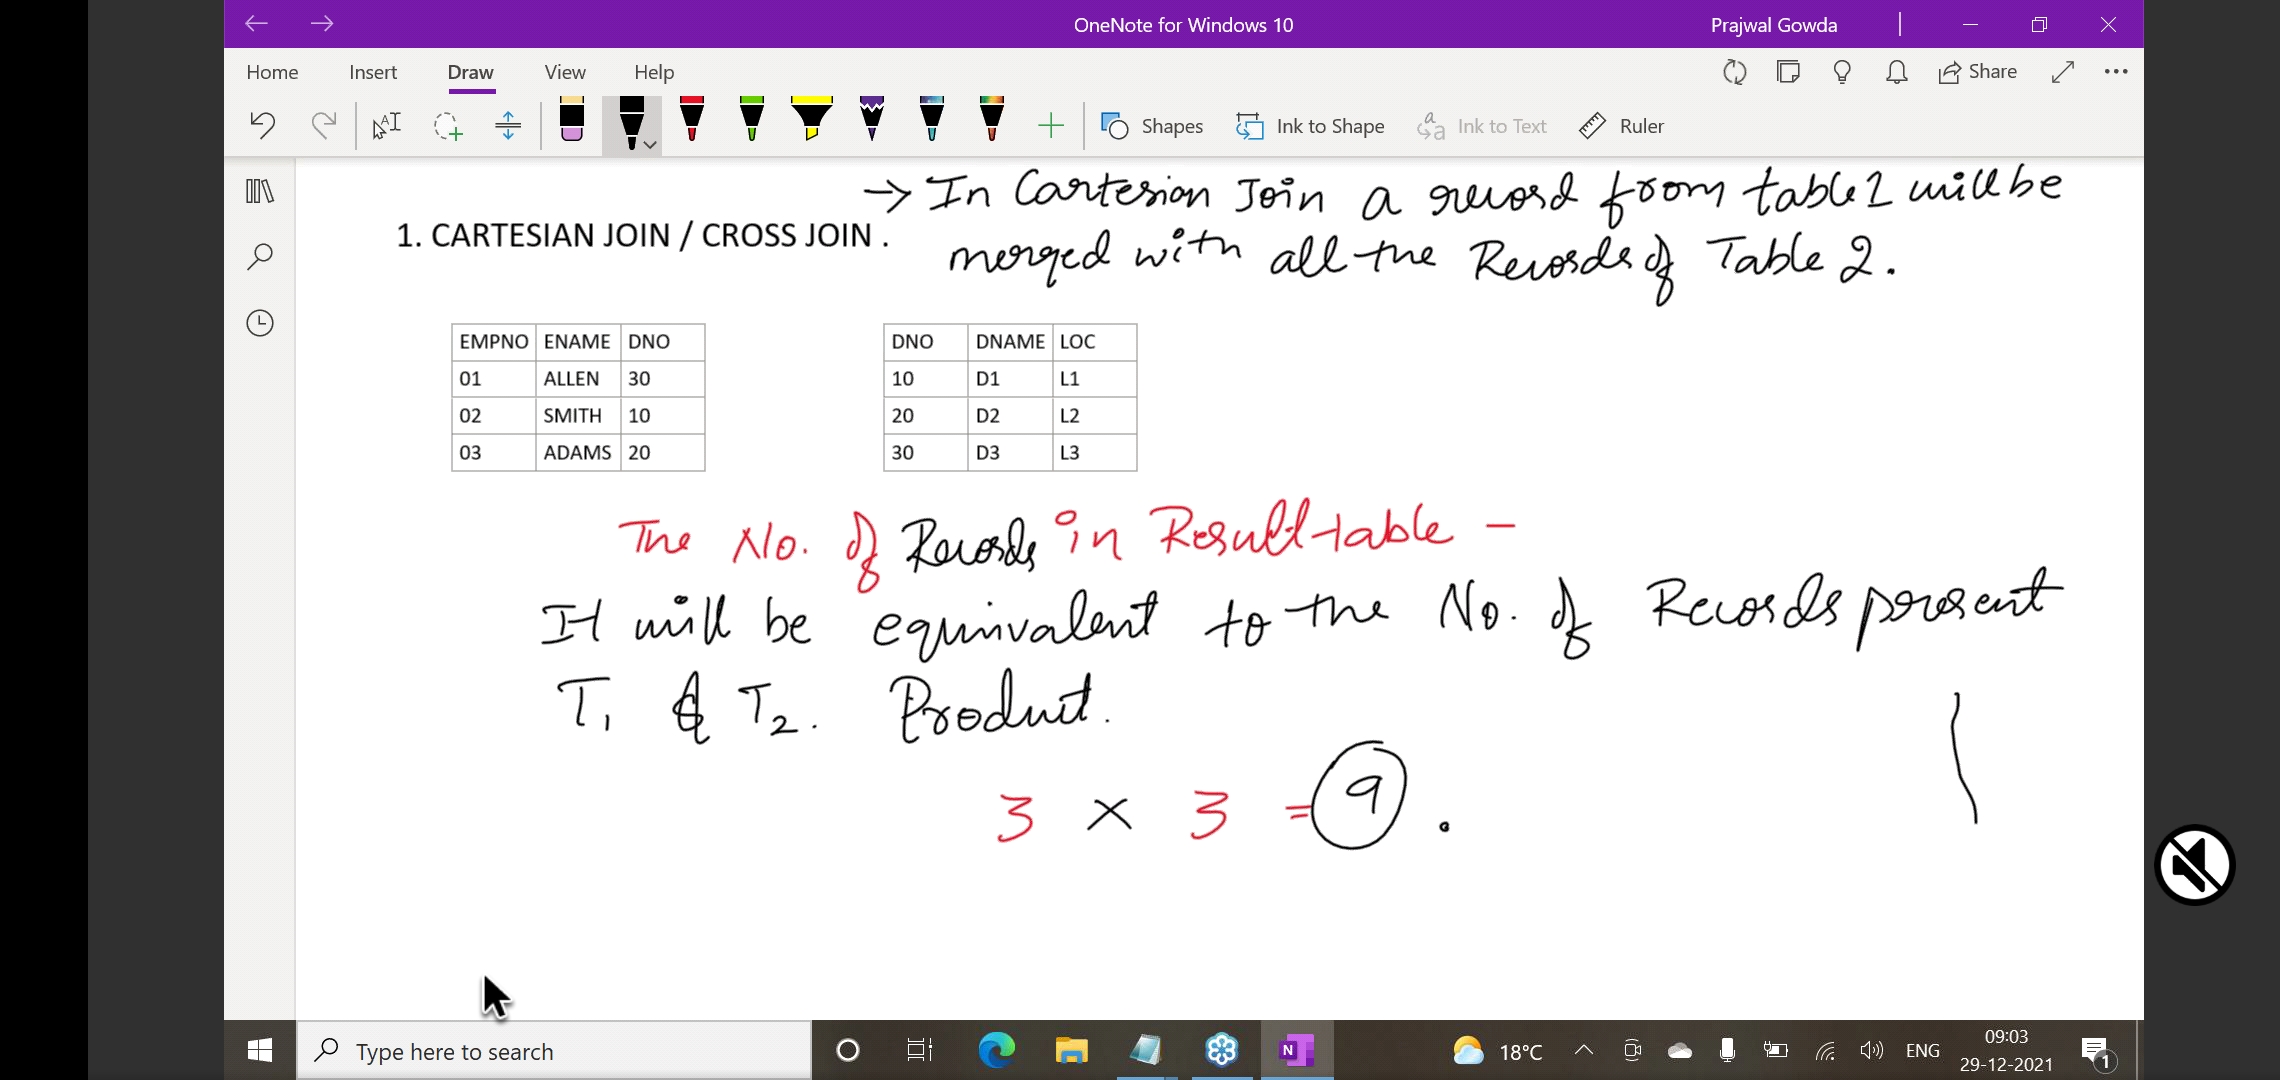 OneNote for Windows 10
Prajwal Gowda
Home Insert Draw View Help
Share
Shapes Ink to Shape Ink to Text Ruler
→ In Cartesian Join a record from table 1 will be
1. CARTESIAN JOIN / CROSS JOIN .
merged with all the Records of Table 2.
EMPNO ENAME DNO
01 ALLEN 30
02 SMITH 10
03 ADAMS 20
DNO DNAME LOC
10 D1 L1
20 D2 L2
30 D3 L3
The No. of Records in Result table -
It will be equinvalent to the No. of Records present
T1 & T2. Product.
3 × 3 = 9 .
Type here to search
18°C
ENG
09:03
29-12-2021
1